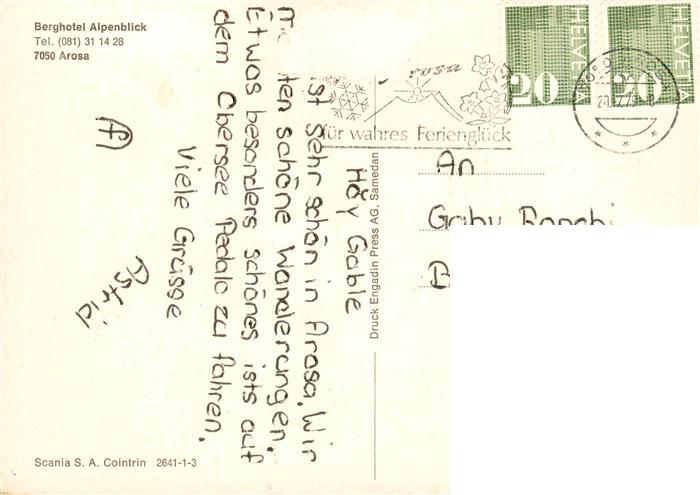 Berghotel Alpenblick
Tel. (081) 31 14 28
7050 Arosa
Höy Gable
ist sehr schön in Arosa. Wir
schöne Wanderungen.
Etwas besonders schönes ists auf
dem Obersee Pedalo zu fahren.
Viele Grüsse
Astrid
Druck Engadin Press AG, Samedan
Scania S. A. Cointrin 2641-1-3
HELVETIA
20
HELVETIA
20
für wahres Ferienglück
An
Gaby